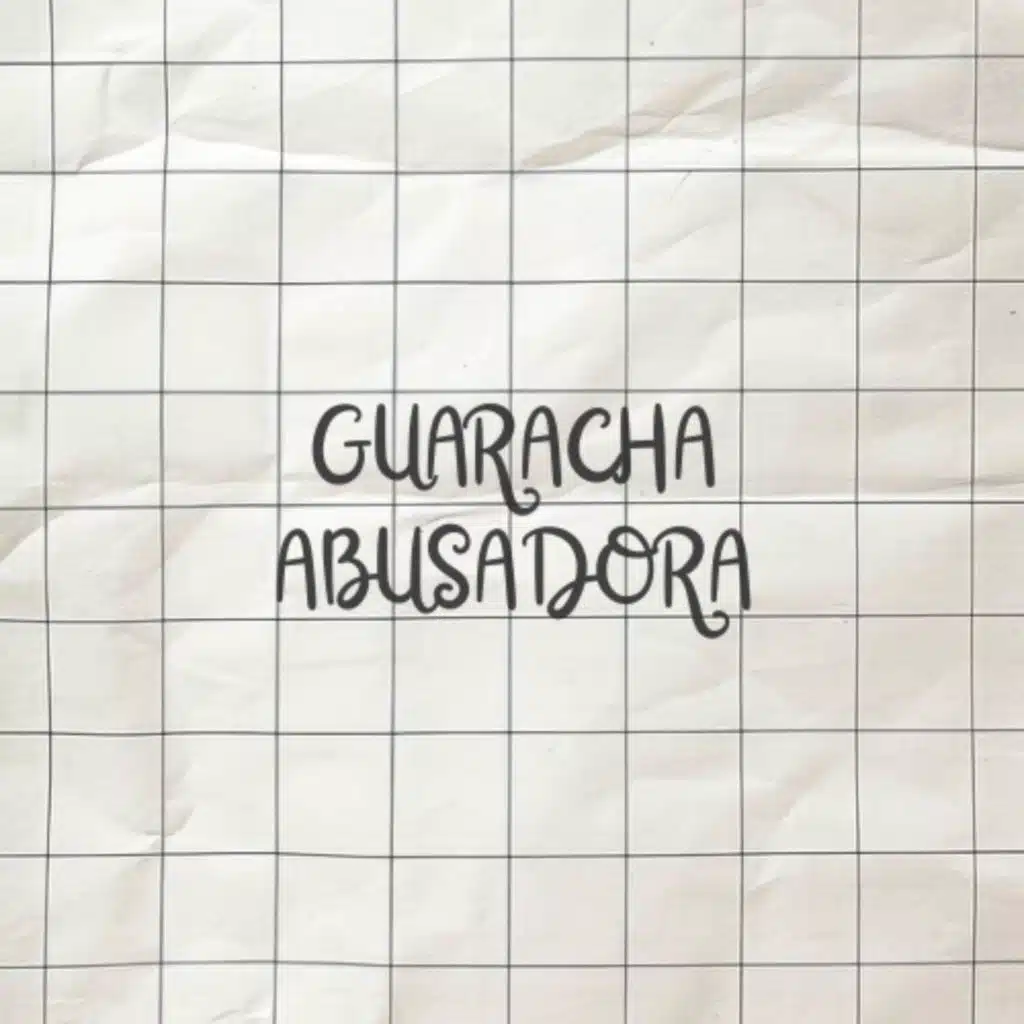 GUARACHA
ABUSADORA